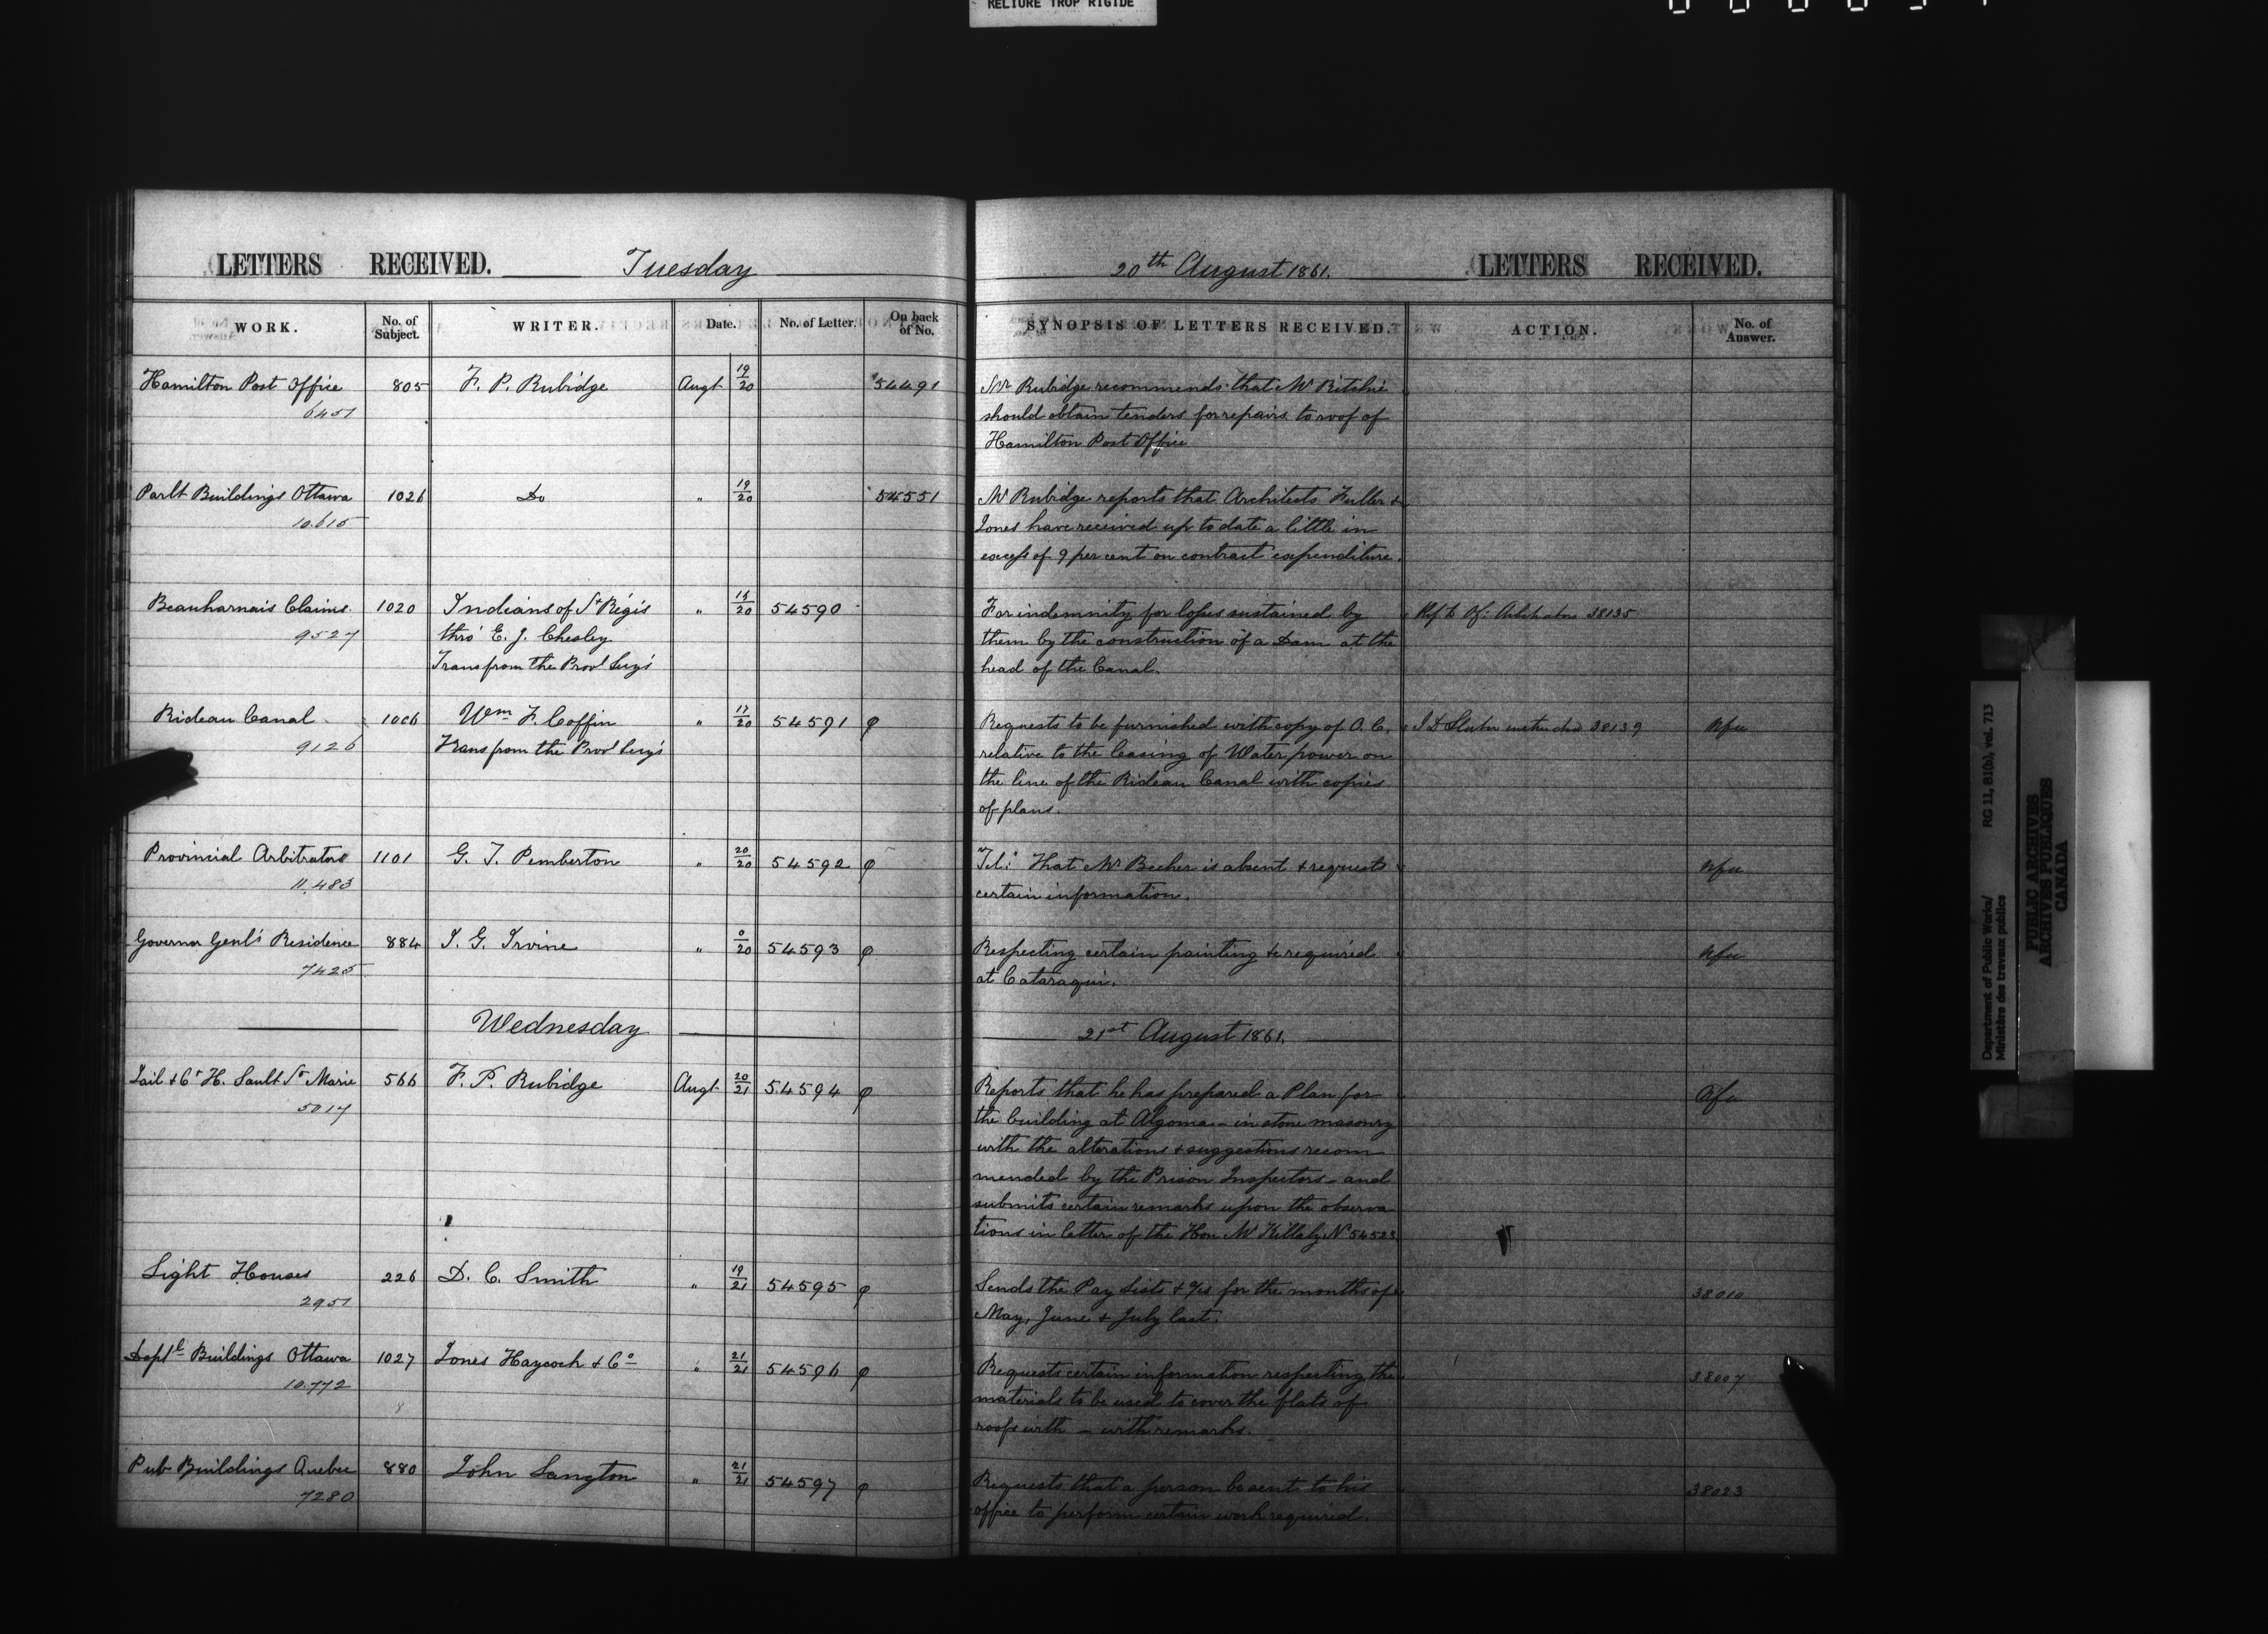 RELIURE TROP RIGIDE
LETTERS RECEIVED. Tuesday
20th August 1861. LETTERS RECEIVED.
WORK. No. of Subject. WRITER. Date. No. of Letter. On back of No. SYNOPSIS OF LETTERS RECEIVED. ACTION. No. of Answer.
Hamilton Post Office 805 F. P. Rubidge Augt 19/20 54491 Mr Rubidge recommends that Mr Ritchie
6451 should obtain tenders for repairs to roof of
Hamilton Post Office
Parlt Buildings Ottawa 1026 Do " 19/20 54551 Mr Rubidge reports that Architects Fuller &
10.615 Jones have received up to date a little in
excess of 9 per cent on contract expenditure.
Beauharnais Claims. 1020 Indians of St Régis " 15/20 54590 For indemnity for losses sustained by Ref to Of: Arbitrators 38135
9527 thro' E. J. Chesley them by the construction of a Dam at the
Trans from the Provl Secy's head of the Canal.
Rideau Canal 1006 Wm F. Coffin " 17/20 54591 φ Requests to be furnished with copy of O. C. J D Slater instructed 38139 Nfu
9126 Trans from the Provl Secy's relative to the leasing of Water power on
the line of the Rideau Canal with copies
of plans.
Provincial Arbitrators 1101 G. T. Pemberton " 20/20 54592 φ "Tel:" That Mr Becher is absent & requests Nfu
11.483 certain information.
Governor Genl's Residence 884 J. G. Irvine " 0/20 54593 φ Respecting certain painting &c required Nfu
7425 at Cataraqui.
Wednesday 21st August 1861.
Jail & Ct H. Sault Ste Marie 566 F. P. Rubidge Augt 20/21 54594 φ Reports that he has prepared a Plan for Nfu
5017 the building at Algoma - in stone masonry
with the alterations & suggestions recom
mended by the Prison Inspectors - and
submits certain remarks upon the observa
tions in letter of the Hon Mr Killaly No 54523
Light Houses 226 D. C. Smith " 19/21 54595 φ Sends the Pay Lists & a/cs for the months of 38010
2951 May, June & July last.
Deptl Buildings Ottawa 1027 Jones Haycock & Co " 21/21 54596 φ Requests certain information respecting the 38007
10.772 materials to be used to cover the flats of
roofs with - with remarks.
Pub Buildings Quebec 880 John Langton " 21/21 54597 φ Requests that a person be sent to his 38023
7280 office to perform certain work required.
Department of Public Works/ RG 11, B1(b), vol. 713
Ministère des travaux publics
PUBLIC ARCHIVES
ARCHIVES PUBLIQUES
CANADA